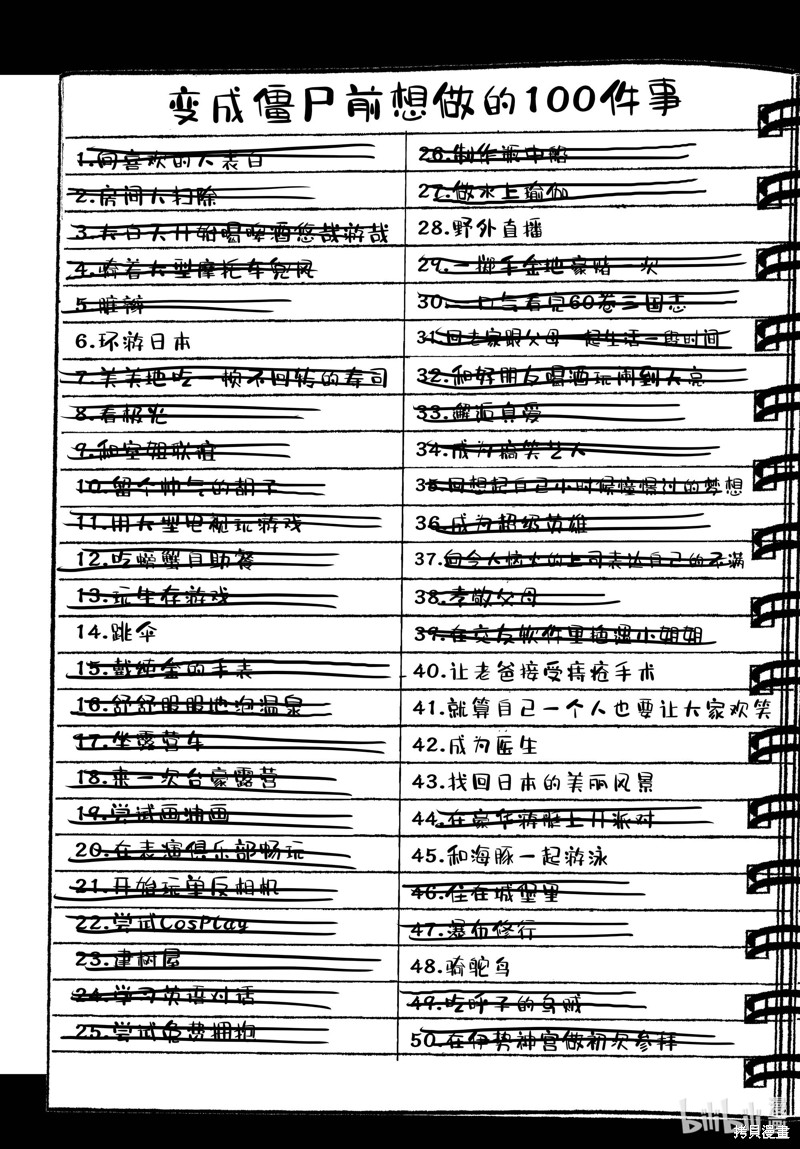 变成僵尸前想做的100件事
1.向喜欢的人表白
2.房间大扫除
3.大白天开始喝啤酒悠哉游哉
4.骑着大型摩托车兜风
5.脏辫
6.环游日本
7.美美地吃一顿不回转的寿司
8.看极光
9.和空姐联谊
10.留个帅气的胡子
11.用大型电视玩游戏
12.吃螃蟹自助餐
13.玩生存游戏
14.跳伞
15.戴纯金的手表
16.舒舒服服地泡温泉
17.坐露营车
18.来一次台豪露营
19.尝试画油画
20.在表演俱乐部畅玩
21.开始玩单反相机
22.尝试CosPlay
23.建树屋
24.学习英语对话
25.尝试免费拥抱
26.制作瓶中船
27.做水上瑜伽
28.野外直播
29.一掷千金地豪赌一次
30.一口气看完60卷三国志
31.回老家跟父母一起生活一段时间
32.和好朋友喝酒玩闹到天亮
33.邂逅真爱
34.成为搞笑艺人
35.回想起自己小时候憧憬过的梦想
36.成为超级英雄
37.向令人恼火的上司表达自己的不满
38.孝敬父母
39.在交友软件里偶遇小姐姐
40.让老爸接受痔疮手术
41.就算自己一个人也要让大家欢笑
42.成为医生
43.找回日本的美丽风景
44.在豪华游艇上开派对
45.和海豚一起游泳
46.住在城堡里
47.瀑布修行
48.骑鸵鸟
49.吃呼子的乌贼
50.在伊势神宫做初次参拜
bilibili漫画
拷贝漫畫